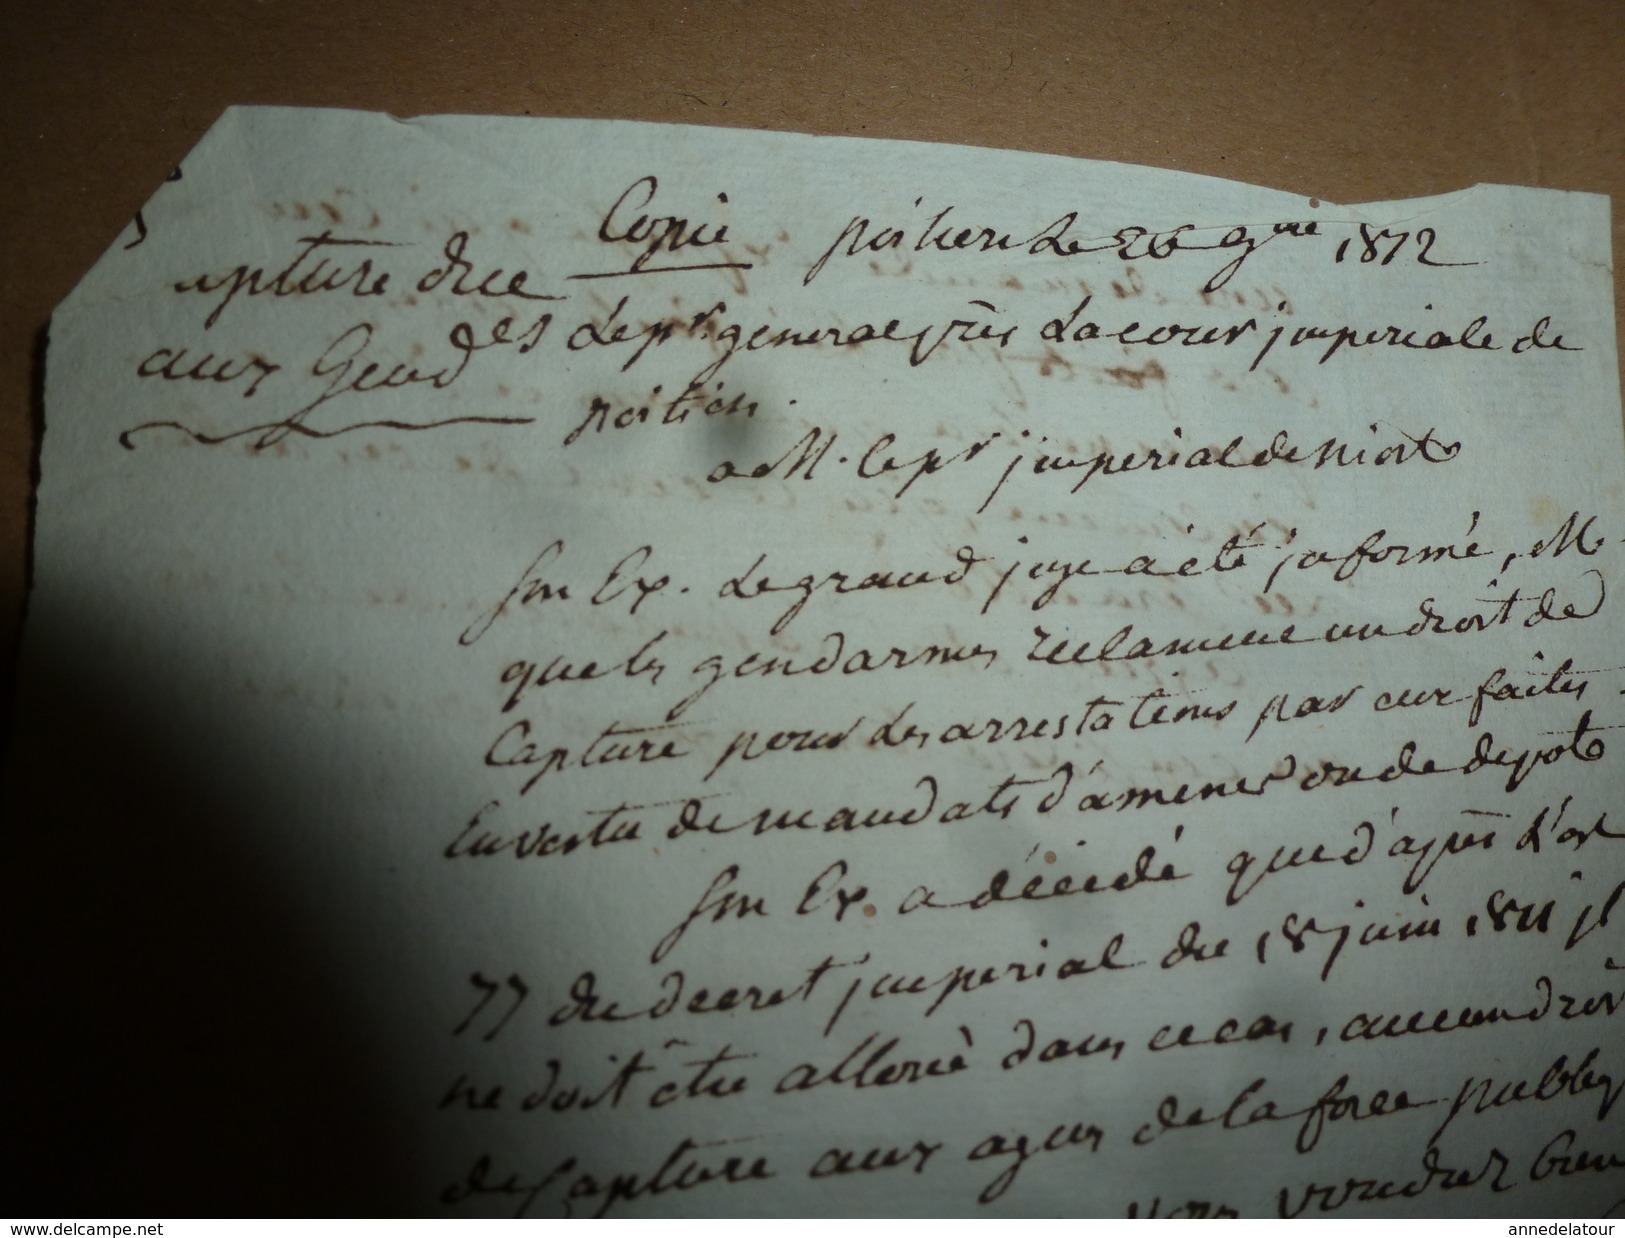 Copie poitiers Le 26 9bre 1812
apture due
aux Gend des
Le pr. general près La cour jmperiale de
poitiers.
a M. le pr jmperial de Niort
Son Ex. Le grand juge a été jnformé, M.
que les gendarmes reclament un droit de
Capture pour Les arrestations par eux faites
En vertu de mandats d'amener ou de depots
Son Ex. a décidé que d'après L'art
77 du decret jmperial du 18 juin 1811 jl
ne doit être alloué dans ce cas, aucun droit
de Capture aux agens de la force publiq
Vous voudrez bien
www.delcampe.net
annedelatour